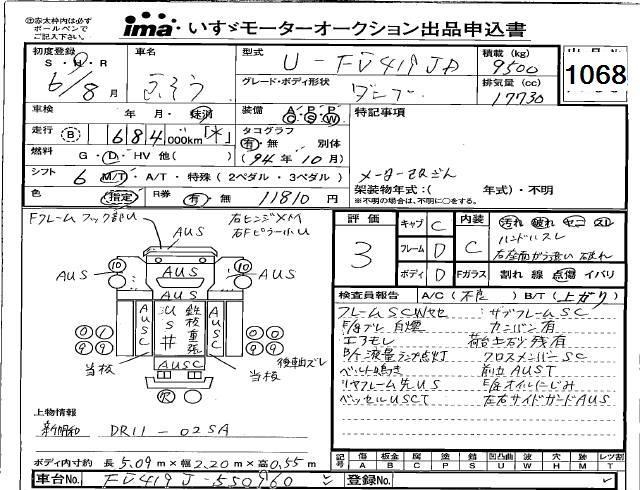 ※赤太枠内は必ずボールペンでご記入下さい。
ima いすゞモーターオークション出品申込書
初度登録 S・H・R 6/8月
車名 ふそう
型式 U-FV419JD
積載(kg) 9500
1068
グレード・ボディ形状 ダンプ
排気量(cc) 17730
車検 年 月・抹消
装備 AC PS PW
特記事項
走行 B 1684000km「*」
タコグラフ 有・無 別体
燃料 G・D・HV 他( )
(94年10月)
シフト 6 M/T・A/T・特殊(2ペダル・3ペダル)
メーター改ざん
架装物年式:( 年式)・不明
※不明の場合は、不明に○をする。
色 指定
R券 有・無 11810円
Fフレーム フック割U
右ヒンジXM
右Fピラー小U
AUS
評価 3
キャブ C
フレーム D
ボディ D
内装 C
汚れ 破れ ヤニ スレ
ハンドルスレ
Fガラス 割れ 線 点傷 イバリ
検査員報告 A/C(不良) B/T(上がり)
フレームSCWセセ
サブフレームSC
E/gブレ 白煙
カンバン有
エアモレ
荷台土砂残有
B/F液量ランプ点灯
クロスメンバーSC
ベルト鳴き
前立AUST
リヤフレーム先US
E/gオイルにじみ
ベッセルUSCT
左右サイドガードAUS
10 AUS AUS AUS 10
AUSC US井 鉄板重張 AUSC
AUSC
当板
当板
後軸ズレ
R
上物情報
新明和 DR11-02SA
ボディ内寸約 長5.09m×幅2.20m×高0.55m
記号 傷A 板金B 腐C 塗P 錆S 凹凸曲U 波W 穴H 欠M レツ割T
車台No. FV419J-550960
登録No.